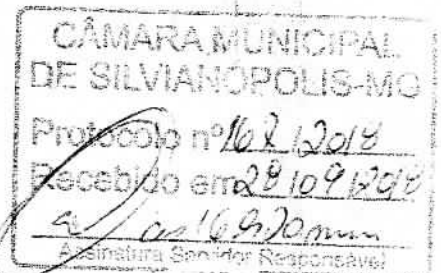 CÂMARA MUNICIPAL
DE SILVIANÓPOLIS-MG
Protocolo nº 168 / 2018
Recebido em 28 / 09 / 2018
às 16
Assinatura Servidor Responsável